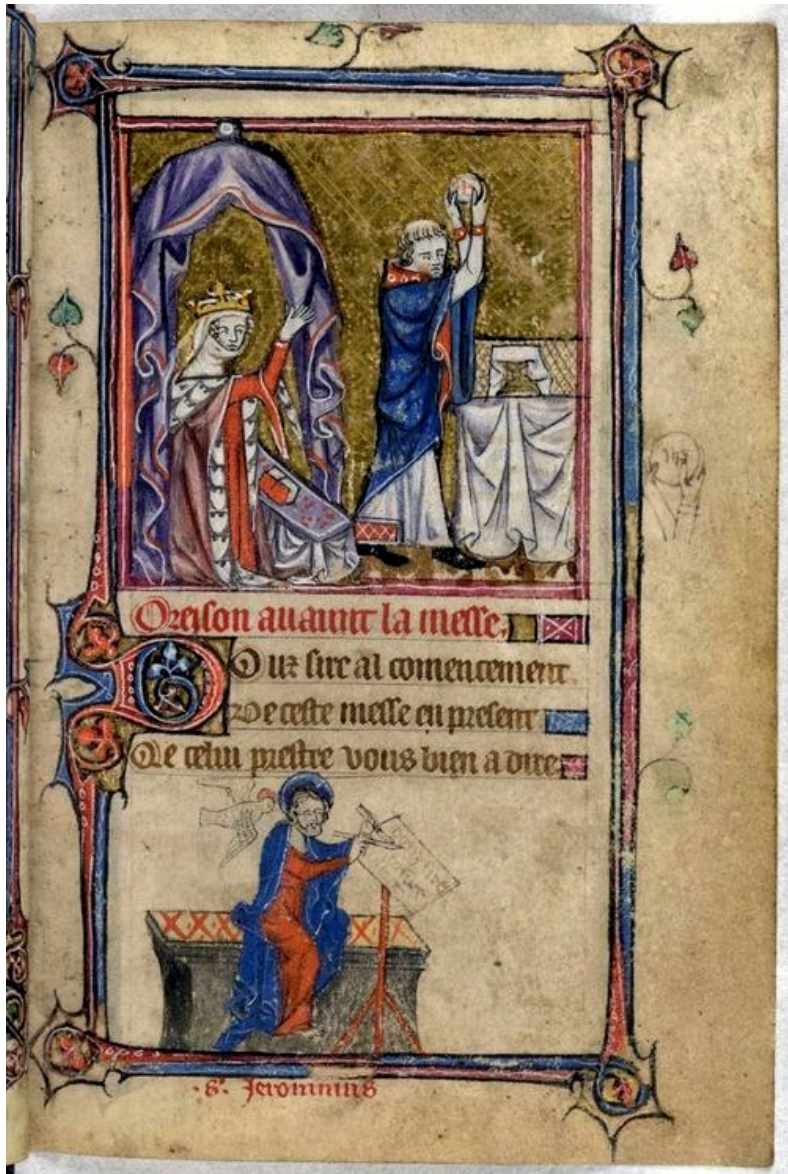 Oreison auaunt la messe.
Douz sire al comencement.
De ceste messe en present
Qe celui prestre vous bien a dire
.S. Jeronimus